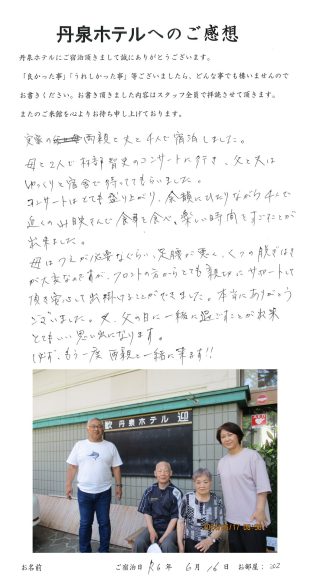 丹泉ホテルへのご感想
丹泉ホテルにご宿泊頂きまして誠にありがとうございます。
「良かった事」「うれしかった事」等ございましたら、どんな事でも構いませんので
お書きください。お書き頂きました内容はスタッフ全員で拝読させて頂きます。
またのご来館を心よりお待ち申し上げております。
実家の両親と夫と4人で宿泊しました。
母と2人で村部智史のコンサートに行き、父と夫は
ゆっくりと宿舎で待っててもらいました。
コンサートはとても盛り上がり、余韻にひたりながら4人で
近くの山映さんで食事を食べ、楽しい時間をすごすことが
出来ました。
母はつえが必要なぐらい、足腰が悪く、くつの脱ぎはき
が大変なのですが、フロントの方からとても親切にサポートして
頂き安心して出掛けることができました。本当にありがとう
ございました。父の日に一緒に過ごすことが出来
とてもいい思い出になります。
必ず、もう一度両親と一緒に来ます!!
歓 丹泉ホテル 迎
お名前 ご宿泊日 R6年 6月 16日 お部屋: 202